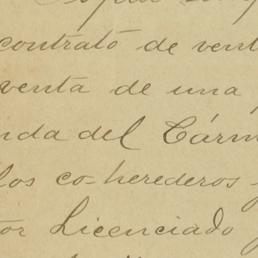 contrato de vent
venta de una
nda del Cárm
los co-herederos
or Licenciado